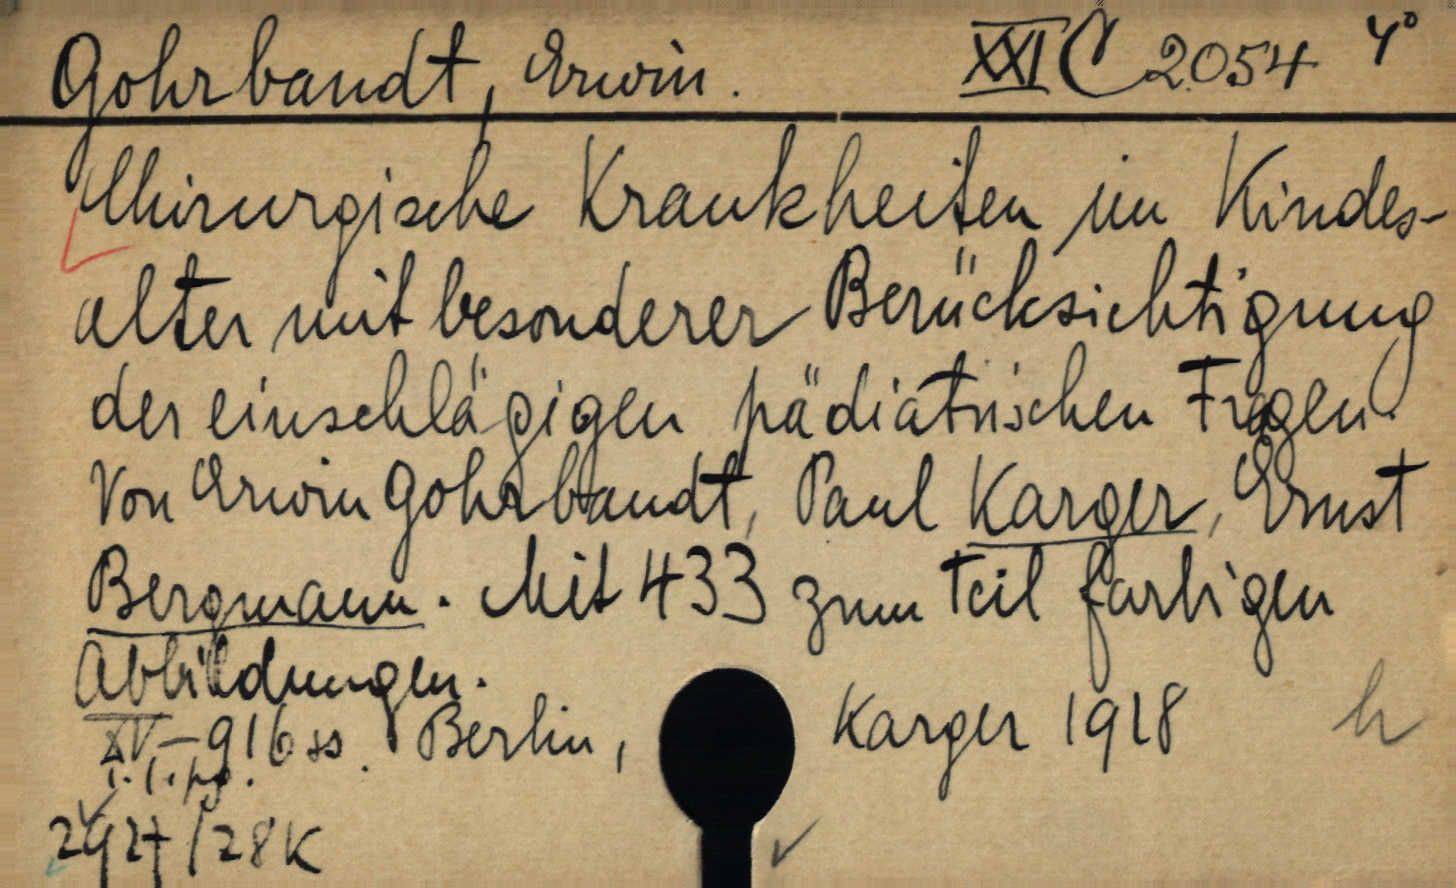 Gohrbandt, Erwin. XXI C 2054 4°
Chirurgische Krankheiten im Kindes-
alter mit besonderer Berücksichtigung
der einschlägigen pädiatrischen Fragen.
Von Erwin Gohrbandt, Paul Karger, Ernst
Bergmann. Mit 433 zum Teil farbigen
Abbildungen.
XV-916 ss. Berlin, Karger 1928
i. 1. pg.
2927/28K